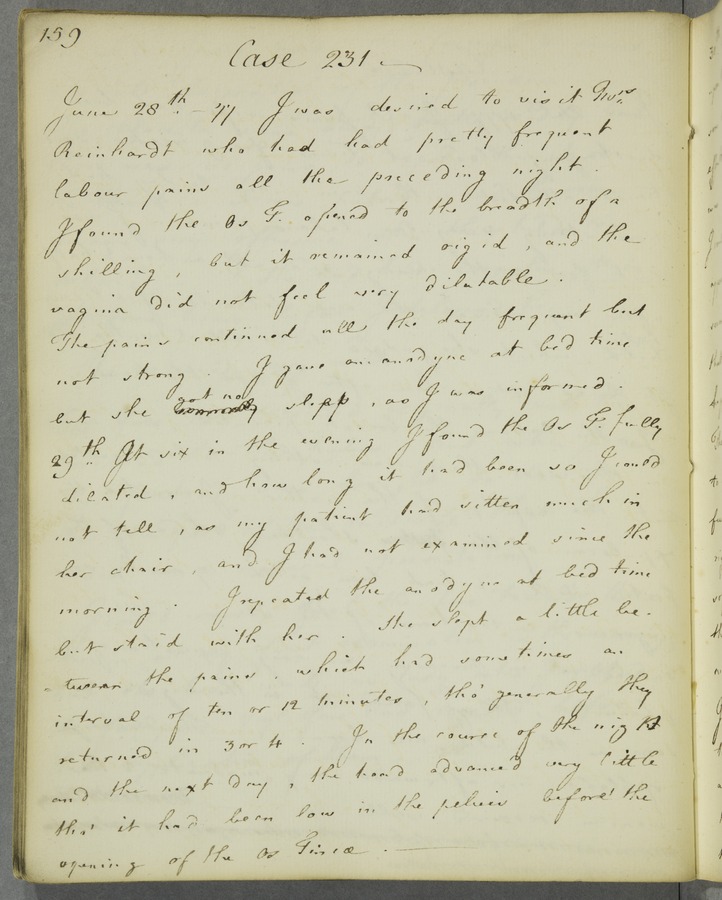 159
Case 231
June 28th - 77 I was desired to visit Mrs
Reinhardt who had had pretty frequent
labour pains all the preceding night.
I found the Os T. opened to the breadth of a
shilling, but it remained rigid, and the
vagina did not feel very dilatable.
The pains continued all the day frequent but
not strong. I gave an anodyne at bed time
got no
but she sleep, as I was informed.
29th At six in the evening I found the Os T. fully
dilated, and how long it had been so I could
not tell, as my patient had sitten much in
her chair, and I had not examined since the
morning. I repeated the anodyne at bed time
but staid with her. She slept a little be-
-tween the pains, which had sometimes an
interval of ten or 12 minutes, tho' generally they
returned in 3 or 4. In the course of the night
and the next day, the head advanced very little
tho' it had been low in the pelvis before the
opening of the Os Tincæ.